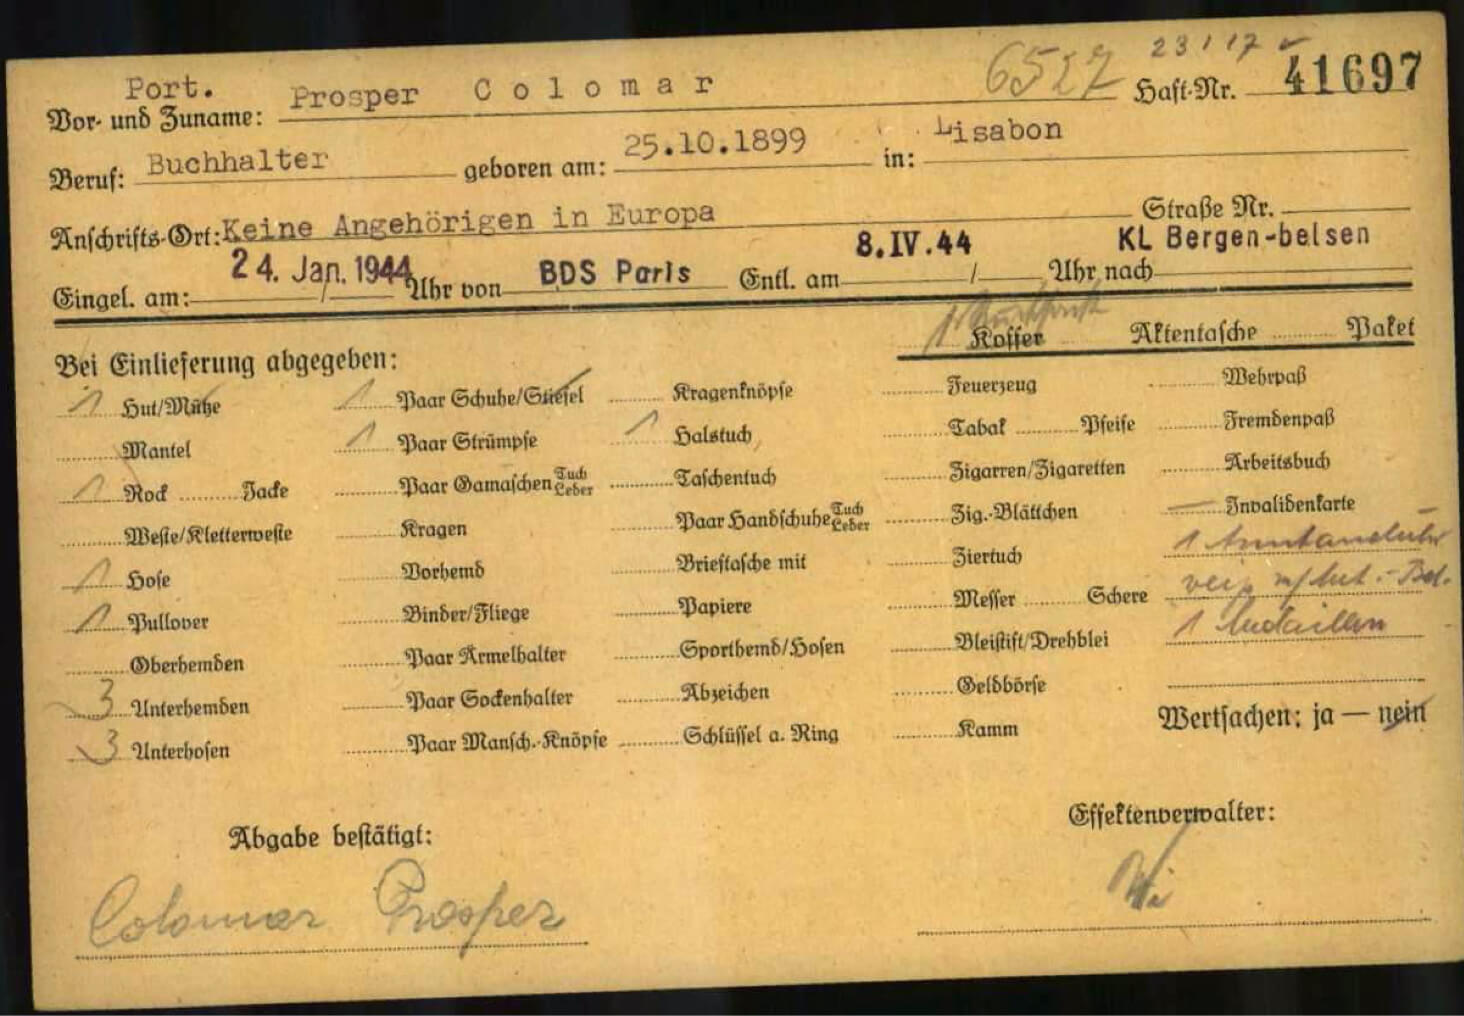 23117
Port. Prosper Colomar 6527 Haft-Nr. 41697
Vor- und Zuname:
Beruf: Buchhalter geboren am: 25.10.1899 in: Lisabon
Anschrifts-Ort: Keine Angehörigen in Europa Straße Nr.
24. Jan. 1944 BDS Paris 8.IV.44 KL Bergen-belsen
Eingel. am: / Uhr von Entl. am / Uhr nach
1 Rucksack
Bei Einlieferung abgegeben: Koffer Aktentasche Paket
1 Hut/Mütze 1 Paar Schuhe/Stiefel Kragenknöpfe Feuerzeug Wehrpaß
Mantel 1 Paar Strümpfe 1 Halstuch Tabak Pfeife Fremdenpaß
1 Rock Jacke Paar Gamaschen Tuch Leder Taschentuch Zigarren/Zigaretten Arbeitsbuch
Weste/Kletterweste Kragen Paar Handschuhe Tuch Leder Zig.-Blättchen Invalidenkarte
1 Hose Vorhemd Brieftasche mit Ziertuch 1 Armbanduhr
1 Pullover Binder/Fliege Papiere Messer Schere
Oberhemden Paar Ärmelhalter Sporthemd/Hosen Bleistift/Drehblei 1 Medaillon
3 Unterhemden Paar Sockenhalter Abzeichen Geldbörse
3 Unterhosen Paar Mansch.-Knöpfe Schlüssel a. Ring Kamm Wertsachen: ja — nein
Abgabe bestätigt: Effektenverwalter:
Colomar Prosper